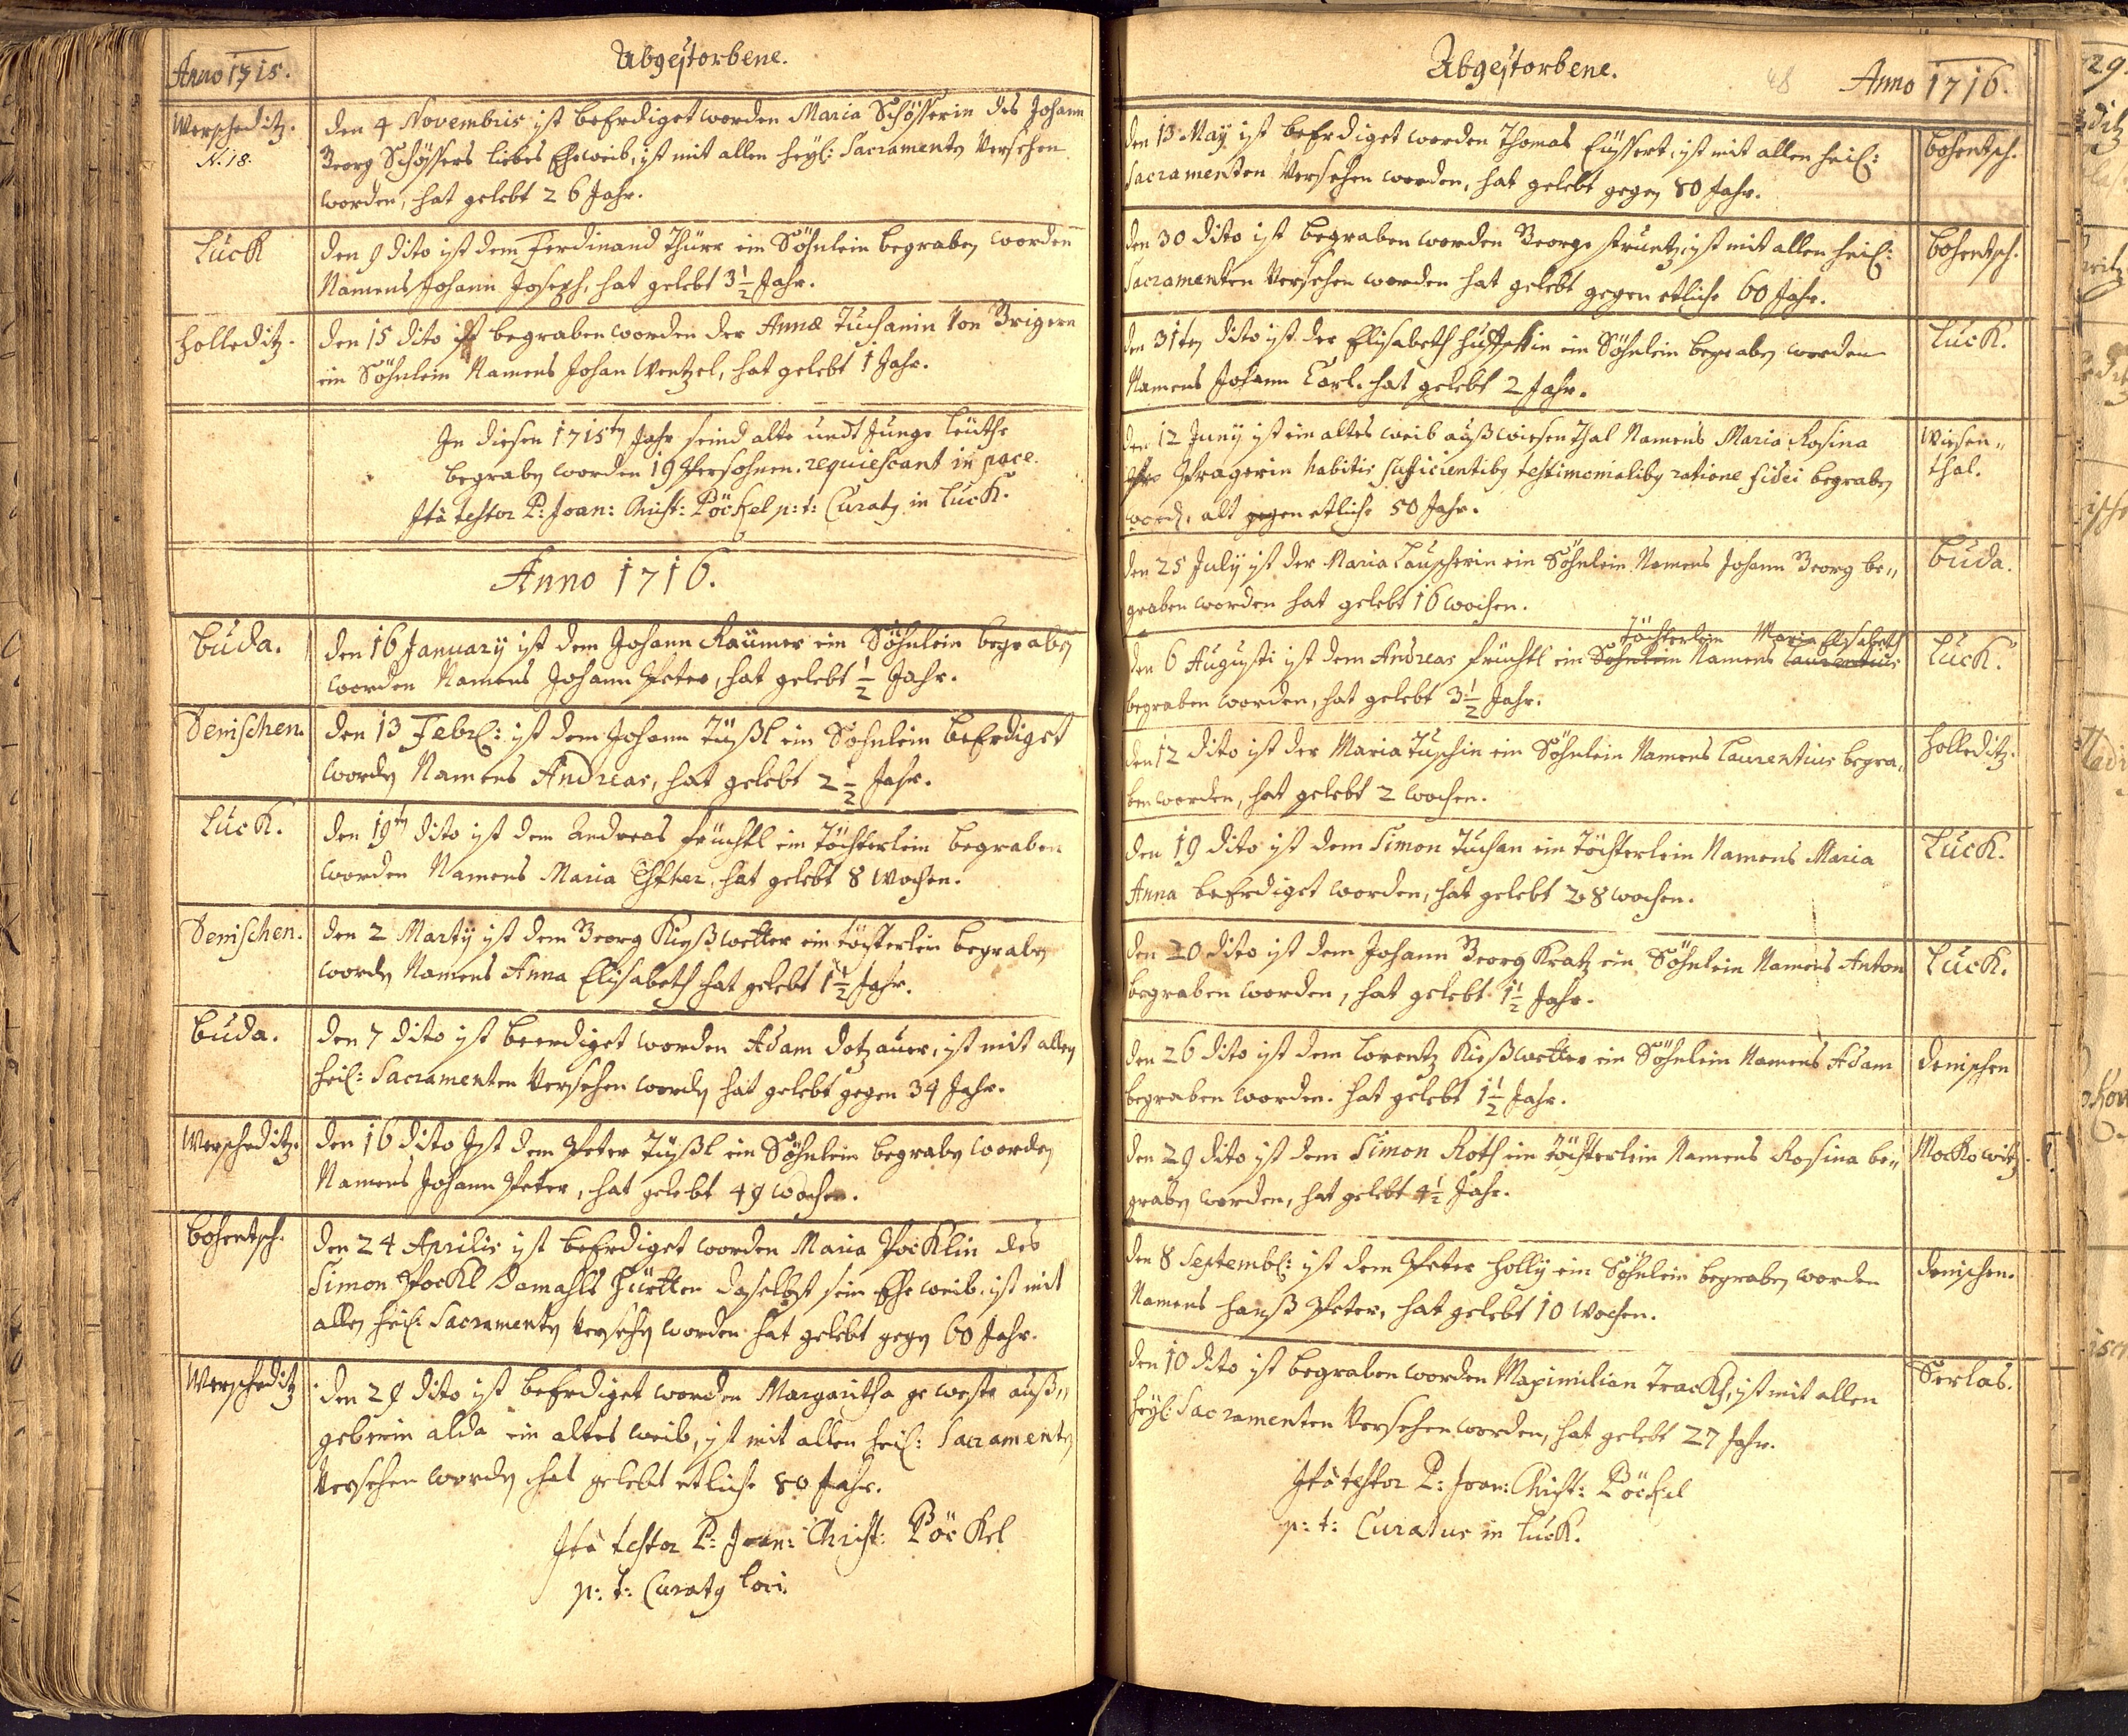 Anno 1715.
Abgestorbene.
Werscheditz.
N. 18.
den 4 Novembris ist beErdiget worden Maria Schösserin des Johann
Georg Schössers liebes Eheweib, ist mit allen heyl: Sacramenten Versehen
worden, hat gelebt 26 Jahr.
Luck
den 9 dito ist dem Ferdinand Thürr ein Söhnlein begraben worden
Namens Johann Joseph, hat gelebt 3 1/2 Jahr.
Holleditz.
den 15 dito ist begraben worden der Annæ Tuchanin Von
ein Söhnlein Namens Johan Wentzel, hat gelebt 1 Jahr.
In diesen 1715ten Jahr seind alte undt Junge Leuthe
begraben worden 19 Persohnen. requiescant in pace.
Ità testor P: Joan: Christ: Pöckel p: t: Curatus in Luck.
Anno 1716.
Buda.
den 16 January ist dem Johann Raümer ein Söhnlein begraben
worden Namens Johann Peter, hat gelebt 1/2 Jahr.
Denischen.
den 13 Febr: ist dem Johann Tüßl ein Söhnlein beErdiget
worden Namens Andreas, hat gelebt 2 1/2 Jahr.
Luck.
den 19ten dito ist dem Andreas Früchtl ein Töchterlein begraben
worden Namens Maria Esther, hat gelebt 8 Wochen.
Denischen.
den 2 Marty ist dem Georg Kießwetter ein töchterlein begraben
worden Namens Anna Elisabeth hat gelebt 1 1/2 Jahr.
Buda.
den 7 dito ist beerdiget worden Adam Dotzauer, ist mit allen
heil: Sacramenten Versehen worden hat gelebt gegen 34 Jahr.
Werscheditz.
den 16 dito Ist dem Peter Tüßl ein Söhnlein begraben worden
Namens Johann Peter, hat gelebt 49 Wochen.
Bohentsch.
den 24 Aprilis ist beErdiget worden Maria Pocklin des
Simon Pockl damahls Hürtten daselbst sein Eheweib. ist mit
allen heil: Sacramenten Versehen worden hat gelebt gegen 60 Jahr.
Werscheditz
den 29 dito ist beErdiget worden Margaritha geweste auß„
geberin alda ein altes weib, ist mit allen heil: Sacramenten
Versehen worden hat gelebt etliche 80 Jahr.
Ità testor P: Joan: Christ: Pöckel
p: t: Curatus loci.
Abgestorbene.
48
Anno 1716.
den 13 May ist beErdiget worden Thomas Eüssert, ist mit allen heil:
Sacramenten Versehen worden, hat gelebt gegen 80 Jahr.
Bohentsch.
den 30 dito ist begraben worden George Struntz, ist mit allen heil:
Sacramenten Versehen worden hat gelebt gegen etliche 60 Jahr.
Bohentsch.
den 31ten dito ist der Elisabeth ein Söhnlein begraben worden
Namens Johann Carl. hat gelebt 2 Jahr.
Luck.
den 12 Juny ist ein altes weib auß wiesenthal Namens Maria Rosina
Pragerin habitis sufficientibus testimonialibus ratione fidei begraben
word. alt gegen etliche 50 Jahr.
Wiesen„
thal.
den 25 July ist der Maria Lauscherin ein Söhnlein Namens Johann Georg be„
graben worden hat gelebt 16 wochen.
Buda.
Töchterlein Maria Elisabeth
den 6 Augusti ist dem Andreas Früchtl ein Söhnlein Namens Laurentius
begraben worden, hat gelebt 3 1/2 Jahr.
Luck.
den 12 dito ist der Maria Tuschin ein Söhnlein Namens Laurentius begra„
ben worden, hat gelebt 2 wochen.
Holleditz.
den 19 dito ist dem Simon Tuchan ein töchterlein Namens Maria
Anna beErdiget worden, hat gelebt 28 wochen.
Luck.
den 20 dito ist dem Johann Georg Kratz ein Söhnlein Namens Anton
begraben worden, hat gelebt 1 1/2 Jahr.
Luck.
den 26 dito ist dem Lorentz Kießwetter ein Söhnlein Namens Adam
begraben worden. hat gelebt 1 1/2 Jahr.
Denischen
den 29 dito ist dem Simon Roth ein töchterlein Namens Rosina be„
graben worden, hat gelebt 4 1/2 Jahr.
Mockowitz.
den 8 Septemb: ist dem Peter Holly ein Söhnlein begraben worden
Namens Hanß Peter, hat gelebt 10 Wochen.
Denischen.
den 10 dito ist begraben worden Maximilian Trackh, ist mit allen
heyl: Sacramenten Versehen worden, hat gelebt 27 Jahr.
Serlas.
Ità testor P: Joan: Christ: Pöckel
p: t: Curatus in Luck.